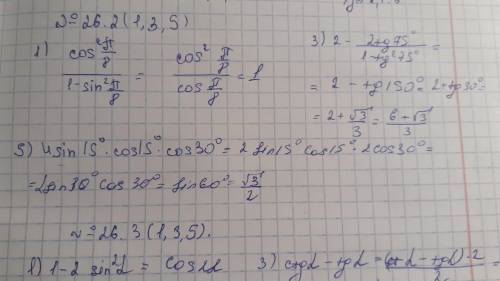 № 26.2 (1, 3, 5)
1) cos²π/8 / 1-sin²π/8 = cos² π/8 / cos π/8 = 1
3) 2 - 2tg75° / 1-tg²75° =
= 2 - tg150° = 2+tg30° =
= 2+√3 / 3 = 6+√3 / 3
5) 4sin15°·cos15°·cos30° = 2 sin15° cos15°·2cos30° =
= 2sin30° cos30° = sin60° = √3/2
№ 26.3 (1, 3, 5).
1) 1-2 sin²α = cos2α
3) ctgα - tgα = (ctgα - tgα)·2 / 2 =